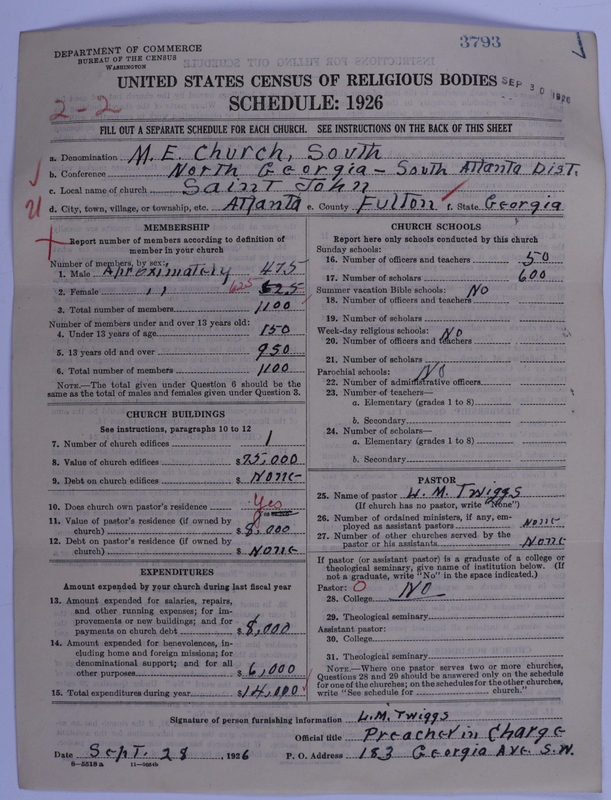 DEPARTMENT OF COMMERCE
BUREAU OF THE CENSUS
WASHINGTON
3793
UNITED STATES CENSUS OF RELIGIOUS BODIES
SEP 30 1926
2-2
SCHEDULE: 1926
FILL OUT A SEPARATE SCHEDULE FOR EACH CHURCH. SEE INSTRUCTIONS ON THE BACK OF THIS SHEET
a. Denomination M.E. Church, South
b. Conference North Georgia - South Atlanta Dist.
c. Local name of church Saint John
d. City, town, village, or township, etc. Atlanta e. County Fulton f. State Georgia
MEMBERSHIP
Report number of members according to definition of
member in your church
Number of members, by sex:
1. Male Aproximately 475
2. Female ,, 625 625
3. Total number of members 1100
Number of members under and over 13 years old:
4. Under 13 years of age 150
5. 13 years old and over 950
6. Total number of members 1100
NOTE.—The total given under Question 6 should be the
same as the total of males and females given under Question 3.
CHURCH BUILDINGS
See instructions, paragraphs 10 to 12
7. Number of church edifices 1
8. Value of church edifices $75,000
9. Debt on church edifices $ None
10. Does church own pastor's residence Yes
11. Value of pastor's residence (if owned by
church) $8,000
12. Debt on pastor's residence (if owned by
church) $ None
EXPENDITURES
Amount expended by your church during last fiscal year
13. Amount expended for salaries, repairs,
and other running expenses; for im-
provements or new buildings; and for
payments on church debt $8,000
14. Amount expended for benevolences, in-
cluding home and foreign missions; for
denominational support; and for all
other purposes $6,000
15. Total expenditures during year $14,000
CHURCH SCHOOLS
Report here only schools conducted by this church
Sunday schools:
16. Number of officers and teachers 50
17. Number of scholars 600
Summer vacation Bible schools: No
18. Number of officers and teachers
19. Number of scholars
Week-day religious schools: No
20. Number of officers and teachers
21. Number of scholars
Parochial schools: No
22. Number of administrative officers
23. Number of teachers—
a. Elementary (grades 1 to 8)
b. Secondary
24. Number of scholars—
a. Elementary (grades 1 to 8)
b. Secondary
PASTOR
25. Name of pastor L. M. Twiggs
(If church has no pastor, write "None")
26. Number of ordained ministers, if any, em-
ployed as assistant pastors None
27. Number of other churches served by the
pastor or his assistants None
If pastor (or assistant pastor) is a graduate of a college or
theological seminary, give name of institution below. (If
not a graduate, write "No" in the space indicated.)
Pastor: 0
28. College No
29. Theological seminary
Assistant pastor:
30. College
31. Theological seminary
NOTE.—Where one pastor serves two or more churches,
Questions 28 and 29 should be answered only on the schedule
for one of the churches; on the schedules for the other churches,
write "See schedule for church."
Signature of person furnishing information L. M. Twiggs
Official title Preacher in Charge
Date Sept. 28, 1926 P. O. Address 183 Georgia Ave. S.W.
8-5518 a